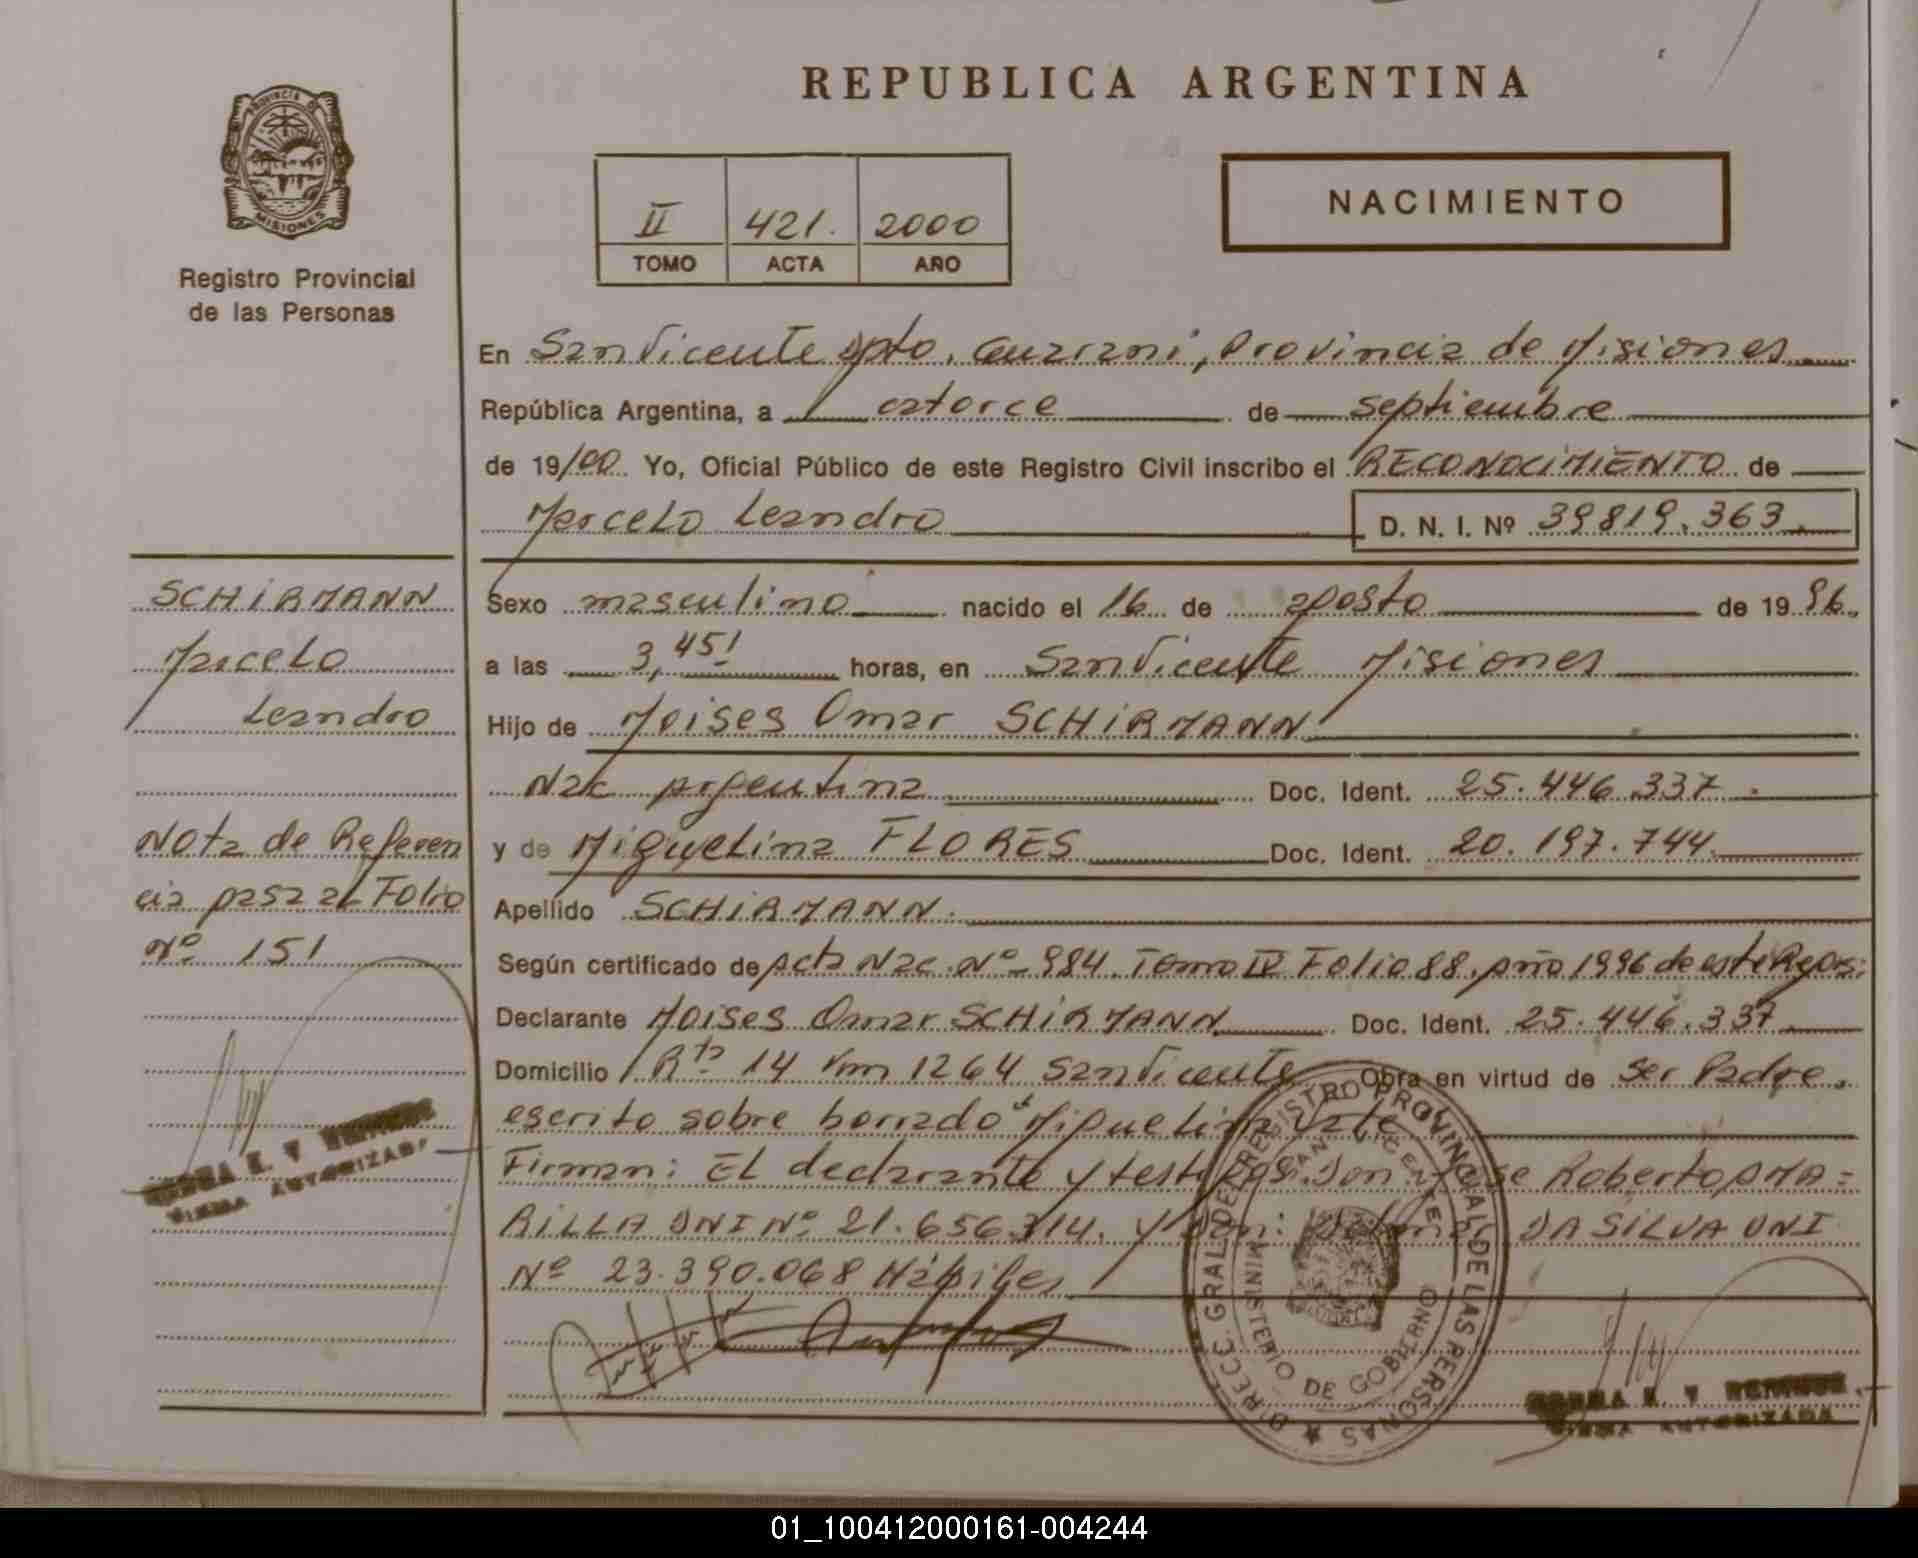 REPUBLICA ARGENTINA
PROVINCIA DE
MISIONES
Registro Provincial
de las Personas
II 421. 2000
TOMO ACTA AÑO
NACIMIENTO
En San Vicente Dpto. Guarani, Provincia de Misiones
República Argentina, a catorce de septiembre
de 19/00 Yo, Oficial Público de este Registro Civil inscribo el RECONOCIMIENTO de
Marcelo Leandro D. N. I. Nº 39819.363.
SCHiRMANN
Marcelo
Leandro
Sexo masculino nacido el 16 de agosto de 19 96.
a las 3,45' horas, en San Vicente Misiones
Hijo de Moises Omar SCHiRMANN
Nac argentina Doc. Ident. 25.446.337.
y de Miguelina FLORES Doc. Ident. 20.197.744.
Apellido SCHiRMANN.
Nota de Referen
cia pasa al Folio
Nº 151
Según certificado de Acta Nac. Nº 984. Tomo IV Folio 88. año 1996 de este Regis:
Declarante Moises Omar SCHiRMANN Doc. Ident. 25.446.337.
Domicilio Rta 14 Km 1264 San Vicente Obra en virtud de ser Padre.
escrito sobre borrado "Miguelina Vale
Firman: El declarante y testigos. Don Jose Roberto AMA=
RiLLA DNI Nº 21.656.314. y Don: DA SiLVA DNI
Nº 23.390.068 Hábiles
DIRECC. GRAL. DE REGISTRO PROVINCIAL DE LAS PERSONAS
SAN VICENTE
MINISTERIO DE GOBIERNO
FIRMA AUTORIZADA
FIRMA AUTORIZADA
01_100412000161-004244